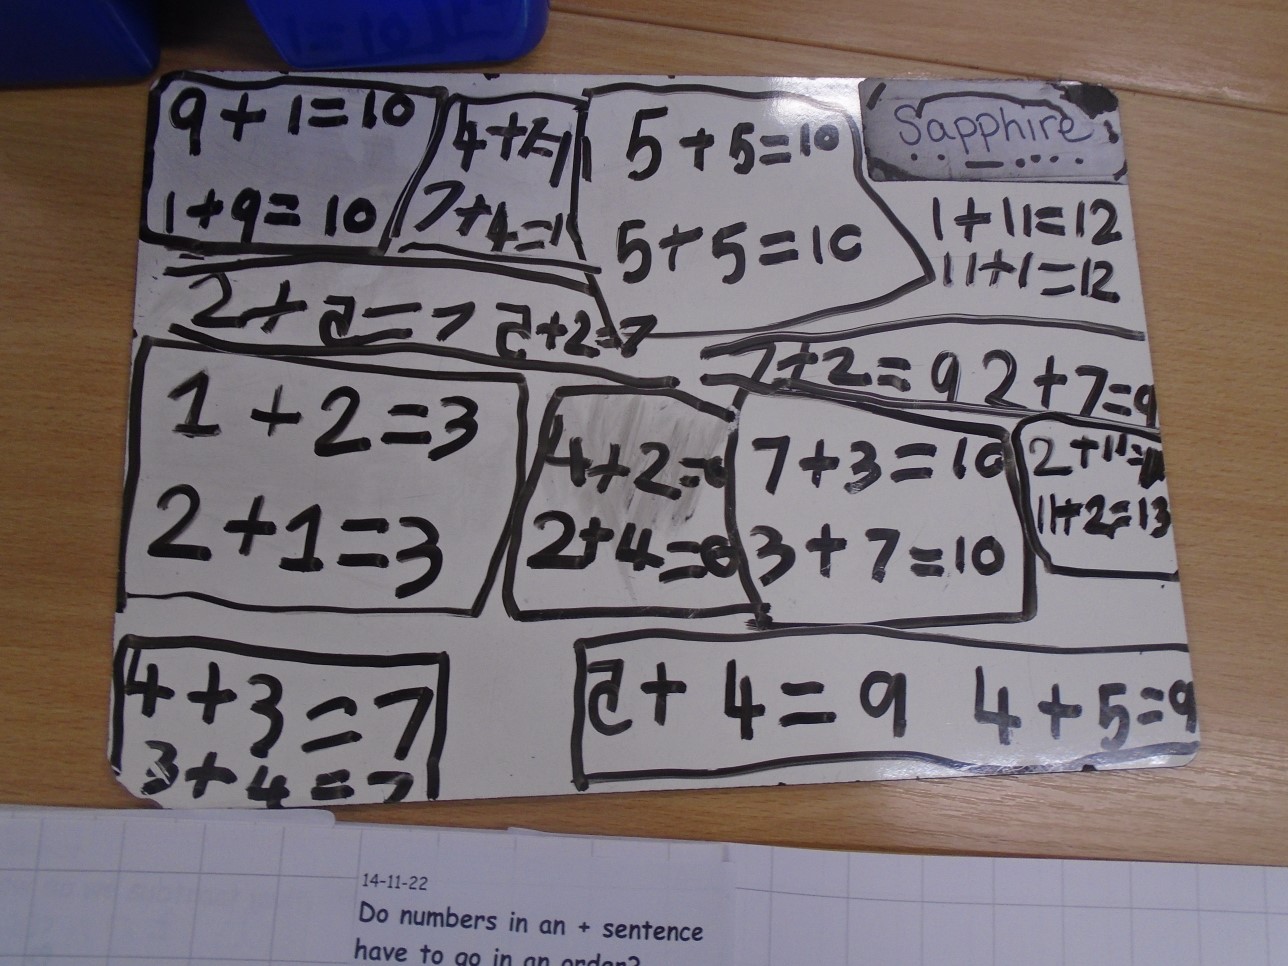 9+1=10
1+9=10
4+7=1
7+4=1
5+5=10
5+5=10
Sapphire
1+11=12
11+1=12
2+5=7 5+2=7
7+2=9 2+7=9
1+2=3
2+1=3
4+2=6
2+4=6
7+3=10
3+7=10
2+11=
11+2=13
4+3=7
3+4=7
5+4=9 4+5=9
14-11-22
Do numbers in an + sentence
have to go in an order?